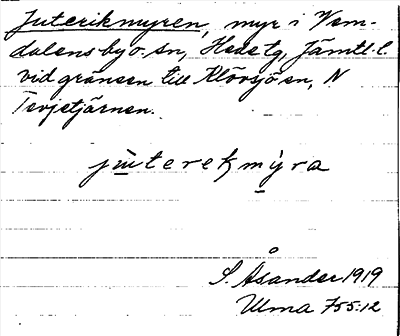 Juterikmyren, myr i Vem-
dalens by o. sn, Hede tg, Jämtl. l.
vid gränsen till Klövsjö sn, N
Tevjetjärnen.
juterekmyra
S. Åsander 1919
Ulma 755:12